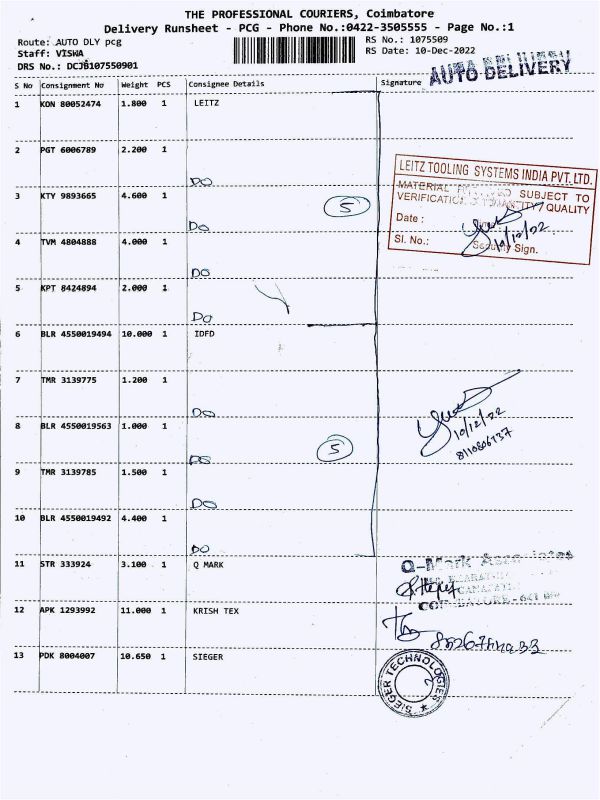 THE PROFESSIONAL COURIERS, Coimbatore
Delivery Runsheet - PCG - Phone No.:0422-3505555 - Page No.:1
Route: AUTO DLY pcg
RS No.: 1075509
Staff: VISWA
RS Date: 10-Dec-2022
DRS No.: DCJB107550901
AUTO DELIVERY
S No Consignment No Weight PCS Consignee Details Signature
1 KON 80052474 1.800 1 LEITZ
2 PGT 6006789 2.200 1
DO
LEITZ TOOLING SYSTEMS INDIA PVT. LTD.
MATERIAL SUBJECT TO
VERIFICATION QUANTITY/QUALITY
3 KTY 9893665 4.600 1
5
Date :
DO
10/12/22
Sl. No.: Security Sign.
4 TVM 4804888 4.000 1
DO
5 KPT 8424894 2.000 1
DO
6 BLR 4550019494 10.000 1 IDFD
7 TMR 3139775 1.200 1
DO
8 BLR 4550019563 1.000 1
10/12/22
5
DO
9 TMR 3139785 1.500 1
DO
10 BLR 4550019492 4.400 1
DO
11 STR 333924 3.100 1 Q MARK
Q-Mark Associates
COIMBATORE - 641
12 APK 1293992 11.000 1 KRISH TEX
13 PDK 8004007 10.650 1 SIEGER
SIEGER TECHNOLOGIES